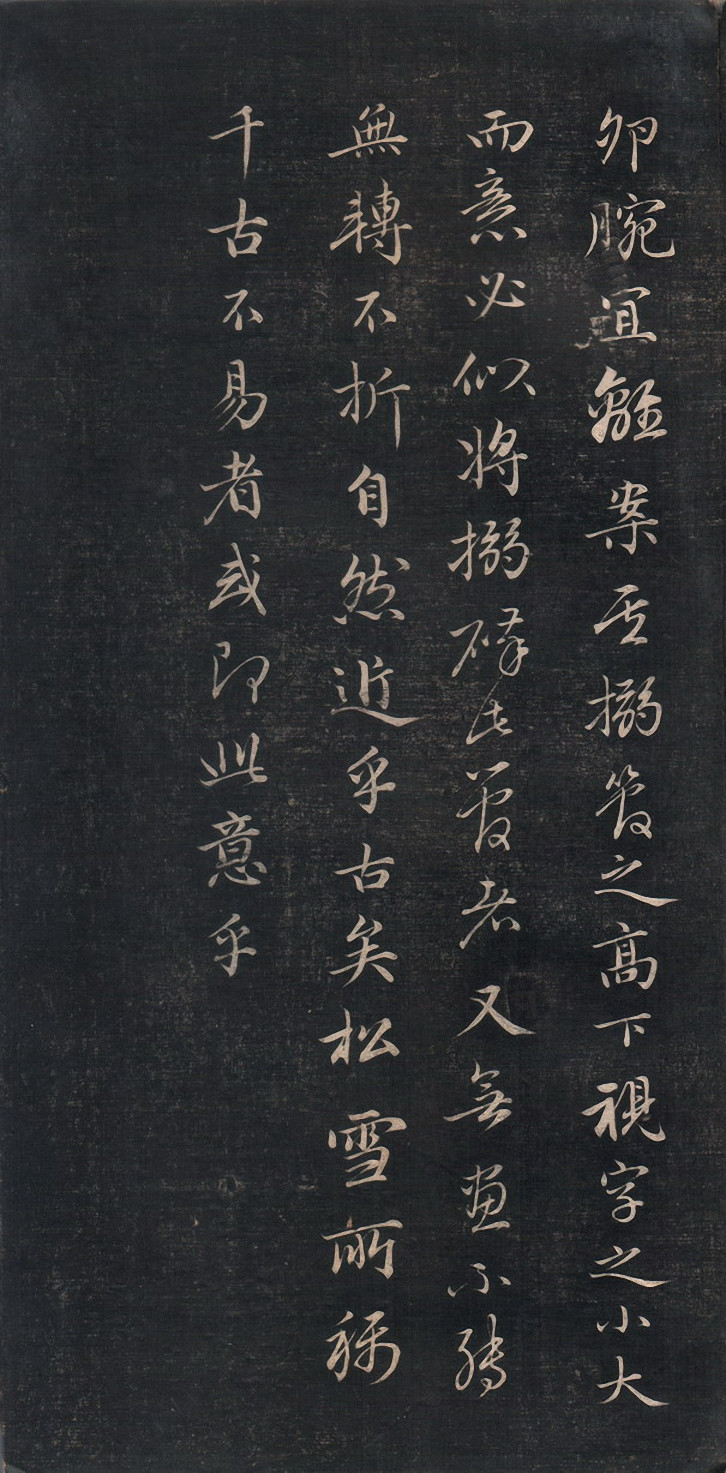 腕宜離案其搦管之高下視字之小大
而意必似將搦碎此管者又無畫不轉
無轉不折自然近乎古矣松雪所称
千古不易者或即此意乎